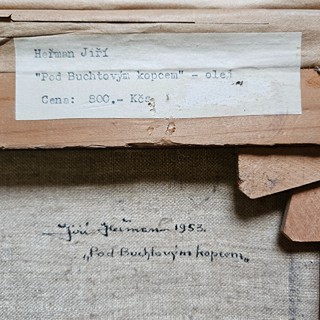 Heřman Jiří
"Pod Buchtovým kopcem" - olej
Cena: 800.- Kčs
Jiří Heřman 1953.
„Pod Buchtovým kopcem„